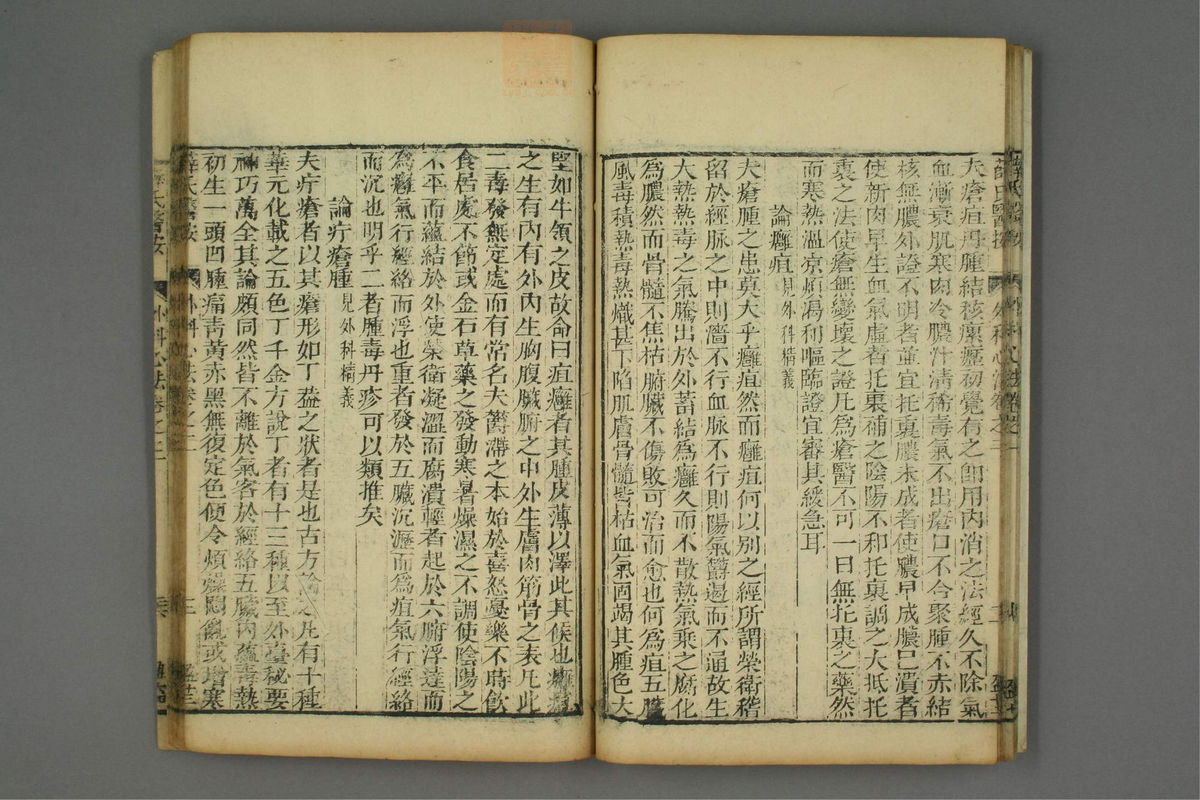 夫瘡疽丹腫結核瘰癧初覺有之即用內消之法經久不除氣
血漸衰肌寒肉冷膿汁清稀毒氣不出瘡口不合聚腫不赤結
核無膿外證不明者並宜托裏膿未成者使膿早成膿已潰者
使新肉早生血氣虛者托裏補之陰陽不和托裏調之大抵托
裏之法使瘡無變壞之證凡為瘡醫不可一日無托裏之藥然
而寒熱溫涼煩渴利嘔臨證宜審其緩急耳
論癰疽見外科精義
夫瘡腫之患莫大乎癰疽然而癰疽何以別之經所謂榮衛稽
留於經脉之中則濇不行血脉不行則陽氣鬱遏而不通故生
大熱熱毒之氣騰出於外蓄結為癰久而不散熱氣乘之腐化
為膿然而骨髓不焦枯腑臟不傷敗可治而愈也何為疽五臟
風毒積熱毒熱熾甚下陷肌膚骨髓皆枯血氣涸竭其腫色大
薛氏醫按 外科心法卷之二 二
堅如牛領之皮故命曰疽癰者其腫皮薄以澤此其候也癰疽
之生有內有外內生胸腹臟腑之中外生膚肉筋骨之表凡此
二毒發無定處而有常名夫鬱滯之本始於喜怒憂樂不時飲
食居處不節或金石草藥之發動寒暑燥濕之不調使陰陽之
不平而蘊結於外使榮衛凝澀而腐潰輕者起於六腑浮達而
為癰氣行經絡而浮也重者發於五臟沉瀝而為疽氣行經絡
而沉也明乎二者腫毒丹疹可以類推矣
論疔瘡腫見外科精義
夫疔瘡者以其瘡形如丁葢之狀者是也古方論之凡有十種
華元化載之五色丁千金方說丁者有十三種以至外臺秘要
神巧萬全其論頗同然皆不離於氣客於經絡五臟內蘊毒熱
初生一頭凹腫痛青黃赤黑無復定色便令煩燥悶亂或增寒
薛氏醫按 外科心法卷之二 三